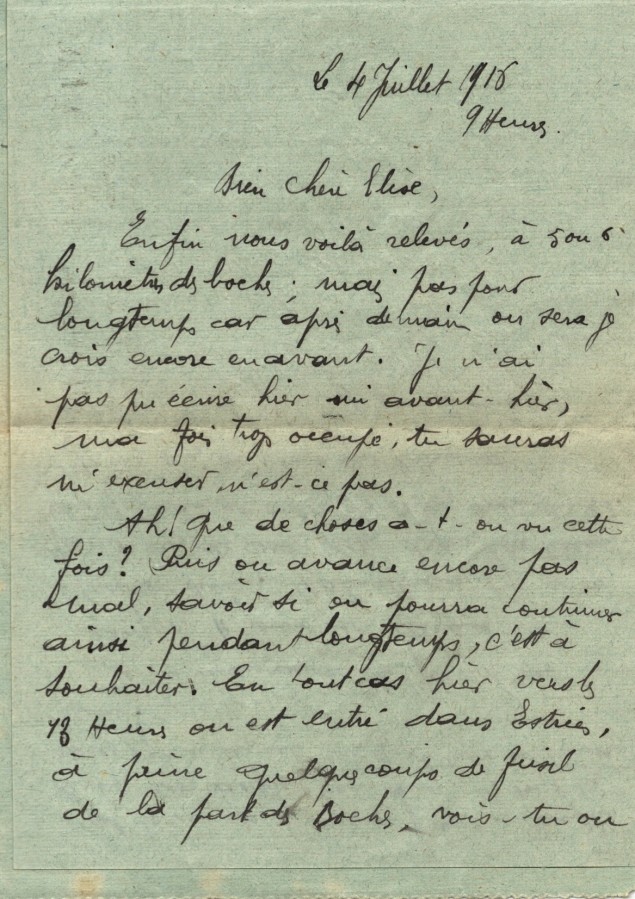 Le 4 Juillet 1916
9 Heures.
Bien chère Elise,
Enfin nous voilà relevés, à 5 ou 6
kilomètres des boches ; mais pas pour
longtemps car après demain on sera je
crois encore en avant. Je n'ai
pas pu écrire hier ni avant-hier,
ma fois trop occupé, tu sauras
m'excuser, n'est-ce pas.
Ah! que de choses a-t-on vu cette
fois? Puis on avance encore pas
mal, savoir si on pourra continuer
ainsi pendant longtemps, c'est à
souhaiter. En tout cas hier vers les
Heures on est entré dans Estrées,
à peine quelques coups de fusil
de la part des Boches, vois-tu on